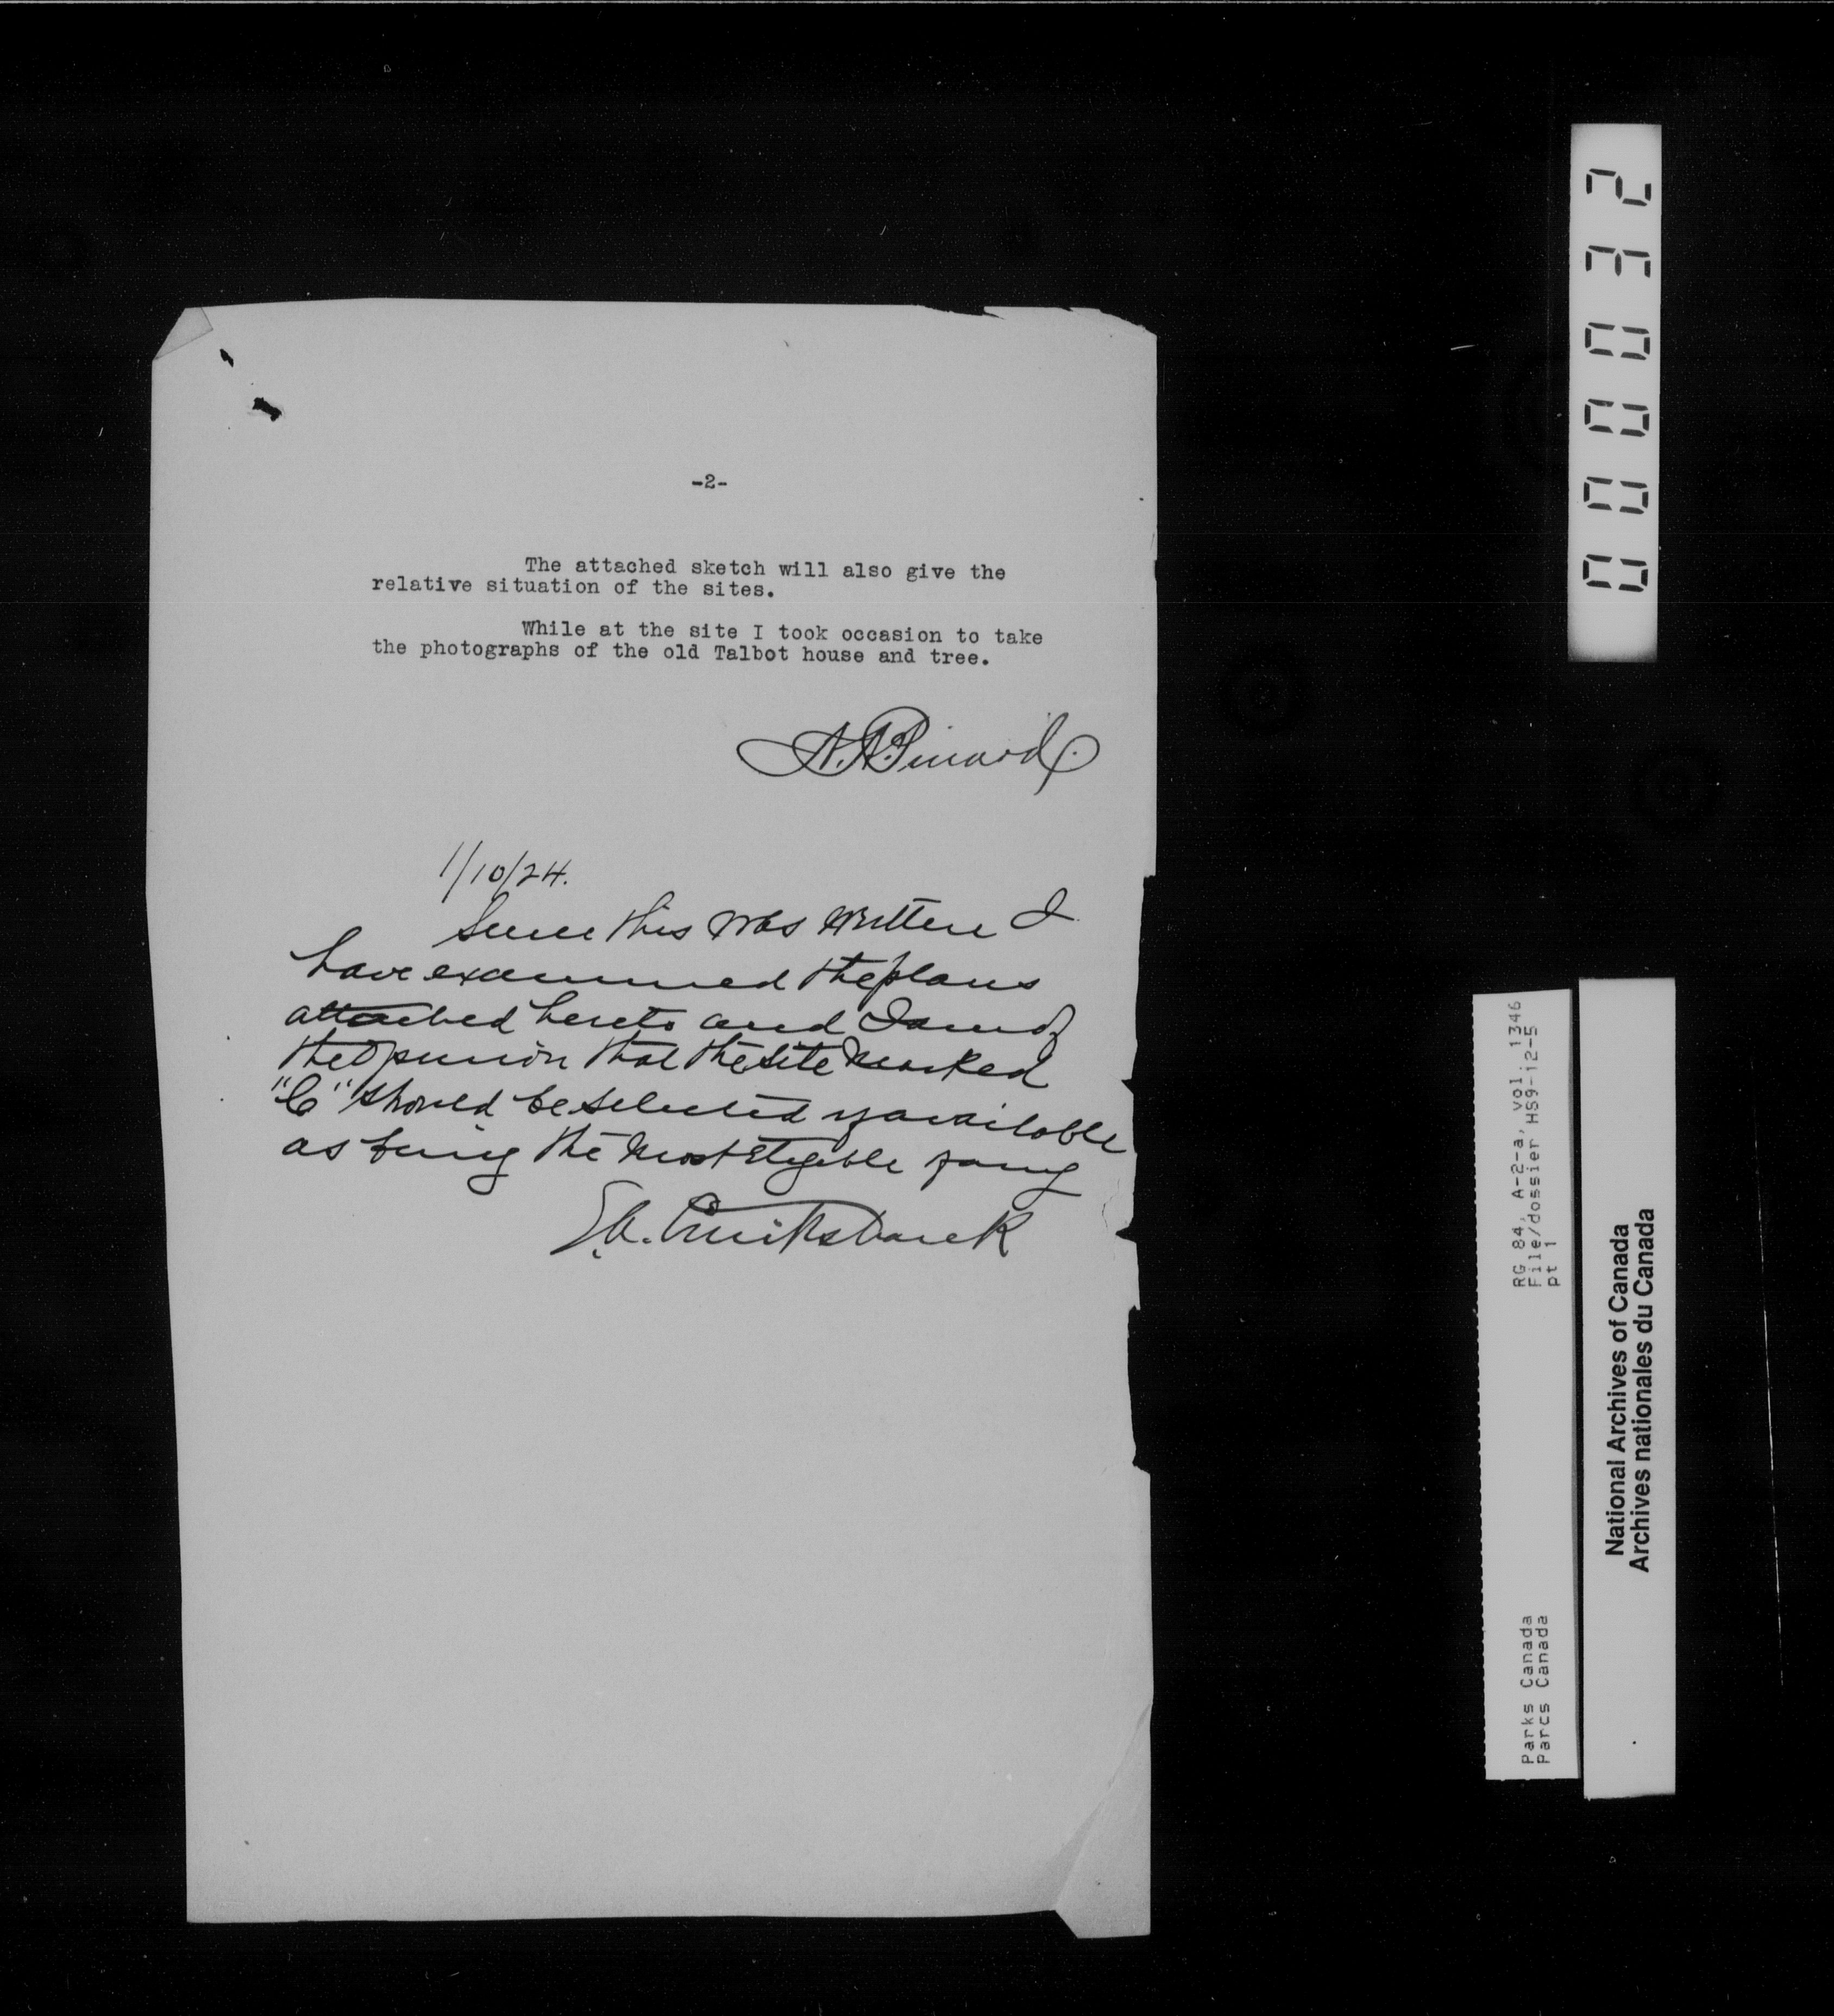 -2-
The attached sketch will also give the
relative situation of the sites.
While at the site I took occasion to take
the photographs of the old Talbot house and tree.
A.A. Pinard.
1/10/24.
Since this was written I
have examined the plans
attached hereto and I am of
the opinion that the site marked
"C" should be selected if available
as being the most eligible of any
E.A. Cruikshank
000032
RG 84, A-2-a, vol. 1346
File/dossier HS9-12-5
pt 1
Parks Canada
Parcs Canada
National Archives of Canada
Archives nationales du Canada